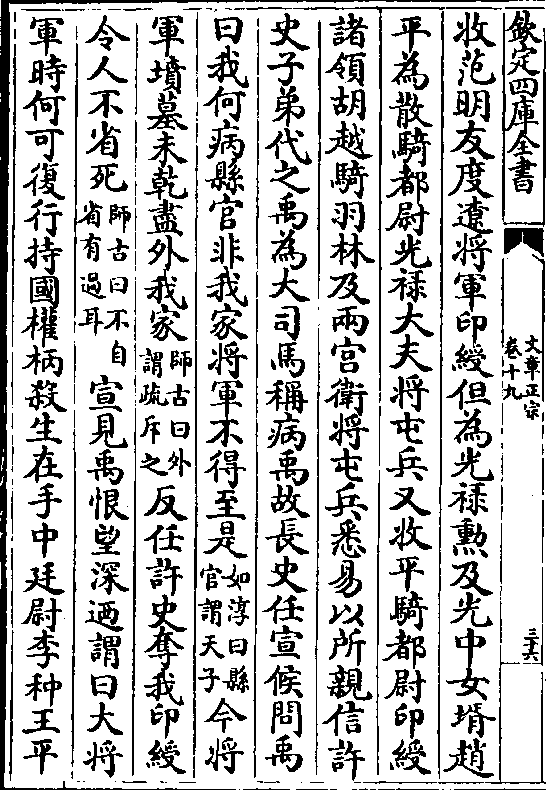 欽定四庫全書
文章正宗
卷十九
三十六
收范明友度遼將軍印綬但為光祿勲及光中女壻趙
平為散騎都尉光祿大夫將屯兵又收平騎都尉印綬
諸領胡越騎羽林及兩宫衛將屯兵悉易以所親信許
史子弟代之禹為大司馬稱病禹故長史任宣候問禹
曰我何病縣官非我家將軍不得至是如淳曰縣官謂天子今將
軍墳墓未乾盡外我家師古曰外謂疏斥之反任許史奪我印綬
令人不省死師古曰不自省有過耳宣見禹恨望深迺謂曰大將
軍時何可復行持國權柄殺生在手中廷尉李种王平